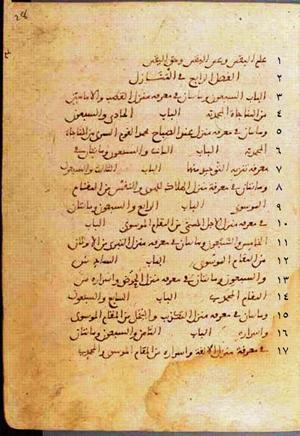 ٢٤
١ علم اليقين وعين اليقين وحق اليقين
٢ الفصل الرابع في المنازل
٣ الباب السبعون ومائتان في معرفة منزل القطب والامامين
٤ من المناجاة المحمدية الباب الحادي والسبعون
٥ ومائتان في معرفة منزل عند الصباح يحمد القوم السرى من المناجاة
٦ المحمدية الباب الثاني والسبعون ومائتان في
٧ معرفة تنزيه التوحيد منها الباب الثالث والسبعون
٨ ومائتان في معرفة منزل الهلاك للهوى والنفس من المقام
٩ الموسوي الباب الرابع والسبعون ومائتان
١٠ في معرفة منزل الاجل المسمى من المقام الموسوي الباب
١١ الخامس والسبعون ومائتان في معرفة منزل التبري من الاوثان
١٢ من المقام الموسوي الباب السادس
١٣ والسبعون ومائتان في معرفة منزل الحوض واسراره من
١٤ المقام المحمدي الباب السابع والسبعون
١٥ ومائتان في معرفة منزل التكذيب والبخل من المقام الموسوي
١٦ واسراره الباب الثامن والسبعون ومائتان
١٧ في معرفة منزل الالفة واسراره من المقام الموسوي والمحمدي